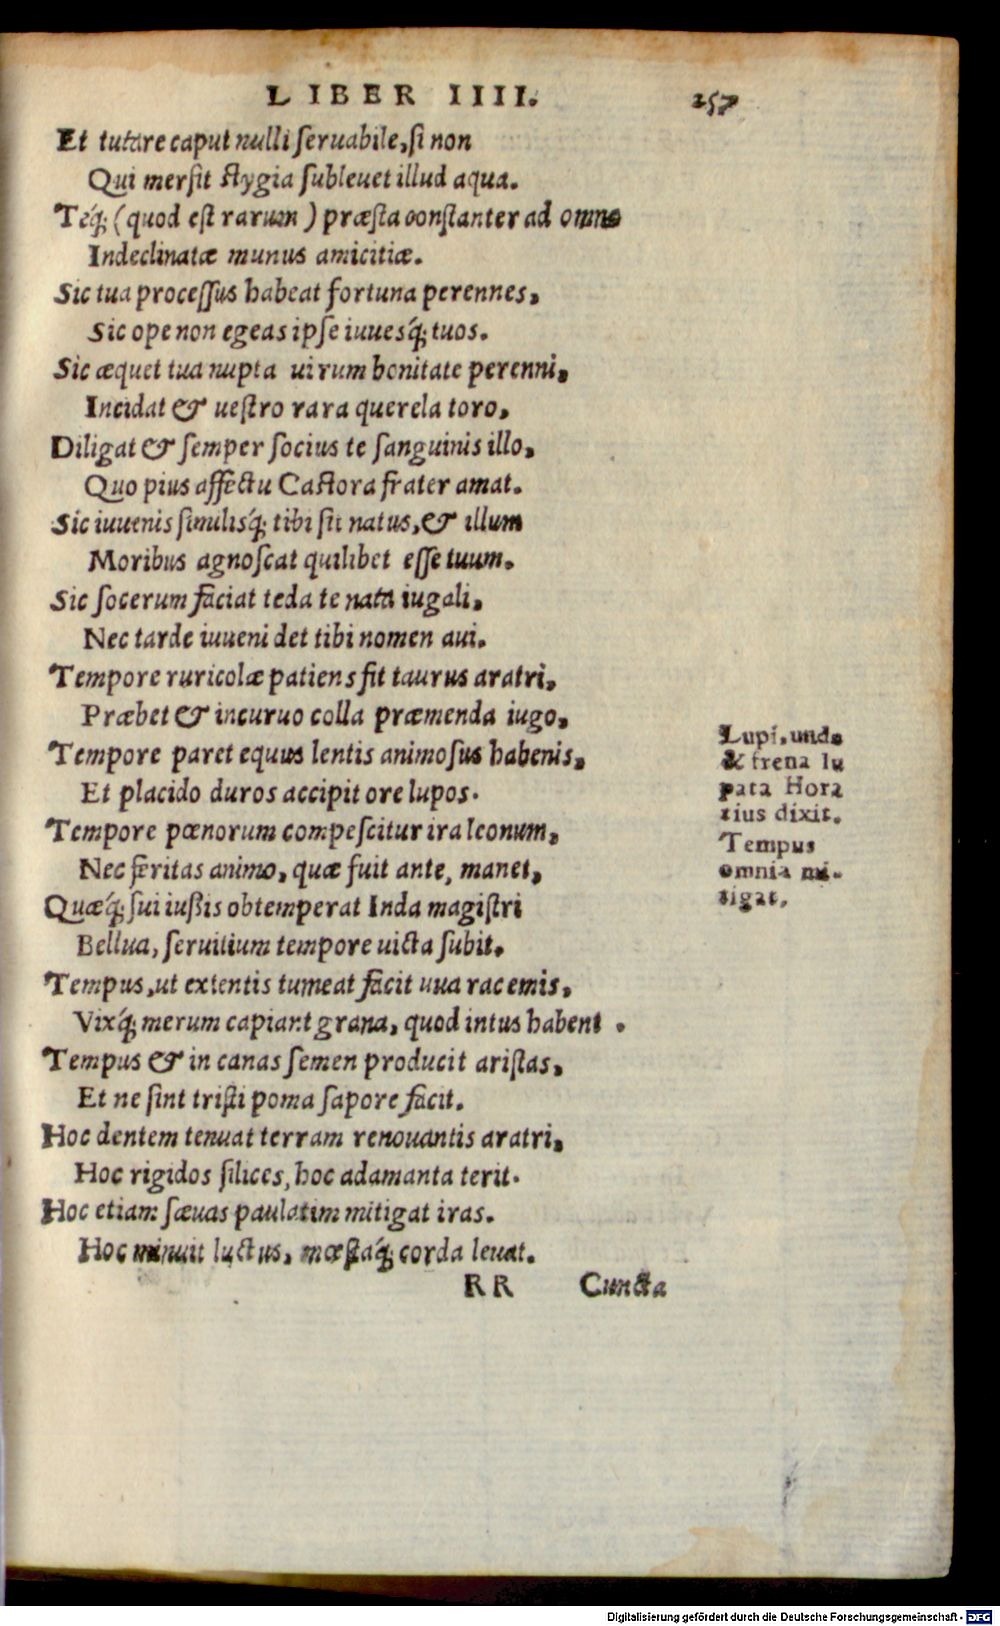 LIBER IIII. 257
Et tutare caput nulli seruabile, si non
Qui mersit stygia subleuet illud aqua.
Teq́; (quod est rarum) præsta constanter ad omne
Indeclinatæ munus amicitiæ.
Sic tua processus habeat fortuna perennes,
Sic ope non egeas ipse iuuesq́; tuos.
Sic æquet tua nupta uirum bonitate perenni,
Incidat & uestro rara querela toro,
Diligat & semper socius te sanguinis illo,
Quo pius affectu Castora frater amat.
Sic iuuenis similisq́; tibi sit natus, & illum
Moribus agnoscat quilibet esse tuum.
Sic socerum faciat teda te nata iugali,
Nec tarde iuueni det tibi nomen aui.
Tempore ruricolæ patiens fit taurus aratri,
Præbet & incuruo colla præmenda iugo,
Tempore paret equus lentis animosus habenis,
Et placido duros accipit ore lupos.
Tempore pœnorum compescitur ira leonum,
Nec feritas animo, quæ fuit ante, manet,
Quæq́; sui iussis obtemperat Inda magistri
Bellua, seruitium tempore uicta subit.
Tempus, ut extentis tumeat facit uua racemis,
Vixq́; merum capiant grana, quod intus habent.
Tempus & in canas semen producit aristas,
Et ne sint tristi poma sapore facit.
Hoc dentem tenuat terram renouantis aratri,
Hoc rigidos silices, hoc adamanta terit.
Hoc etiam sæuas paulatim mitigat iras.
Hoc minuit luctus, mœstaq́; corda leuat.
RR Cuncta
Lupi, unde
& frena lu
pata Hora
tius dixit.
Tempus
omnia mi-
tigat.
Digitalisierung gefördert durch die Deutsche Forschungsgemeinschaft - DFG